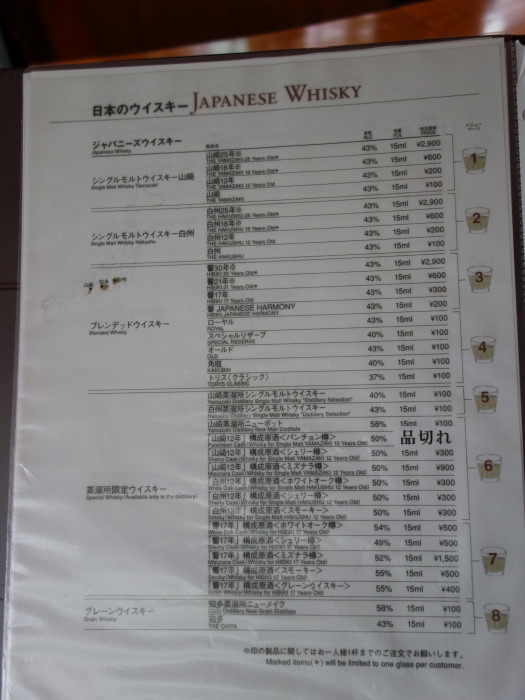 日本のウイスキー JAPANESE WHISKY
ジャパニーズウイスキー
Japanese Whisky
山崎25年※ 43% 15ml ¥2,900
THE YAMAZAKI 25 Years Old*
山崎18年※ 43% 15ml ¥600
THE YAMAZAKI 18 Years Old*
シングルモルトウイスキー山崎 山崎12年 43% 15ml ¥200
Single Malt Whisky Yamazaki THE YAMAZAKI 12 Years Old
山崎 43% 15ml ¥100
THE YAMAZAKI
1
白州25年※ 43% 15ml ¥2,900
THE HAKUSHU 25 Years Old*
白州18年※ 43% 15ml ¥600
THE HAKUSHU 18 Years Old*
シングルモルトウイスキー白州 白州12年 43% 15ml ¥200
Single Malt Whisky Hakushu THE HAKUSHU 12 Years Old
白州 43% 15ml ¥100
THE HAKUSHU
2
響30年※ 43% 15ml ¥2,900
HIBIKI 30 Years Old*
響21年※ 43% 15ml ¥600
HIBIKI 21 Years Old*
響17年 43% 15ml ¥300
HIBIKI 17 Years Old
響 JAPANESE HARMONY 43% 15ml ¥200
HIBIKI JAPANESE HARMONY
3
ブレンデッドウイスキー ローヤル 43% 15ml ¥100
Blended Whisky ROYAL
スペシャルリザーブ 40% 15ml ¥100
SPECIAL RESERVE
オールド 43% 15ml ¥100
OLD
角瓶 40% 15ml ¥100
KAKUBIN
トリス〈クラシック〉 37% 15ml ¥100
TORYS CLASSIC
4
山崎蒸溜所シングルモルトウイスキー 40% 15ml ¥100
Yamazaki Distillery Single Malt Whisky "Distillery Selection"
白州蒸溜所シングルモルトウイスキー 43% 15ml ¥100
Hakushu Distillery Single Malt Whisky "Distillery Selection"
5
山崎蒸溜所ニューポット 58% 15ml ¥100
Yamazaki Distillery New Malt Distillate
「山崎12年」構成原酒<パンチョン樽> 50% 品切れ
Puncheon Cask(Whisky for Single Malt YAMAZAKI 12 Years Old)
「山崎12年」構成原酒<シェリー樽> 50% 15ml ¥300
Sherry Cask(Whisky for Single Malt YAMAZAKI 12 Years Old)
「山崎12年」構成原酒<ミズナラ樽> 50% 15ml ¥900
Mizunara Cask(Whisky for Single Malt YAMAZAKI 12 Years Old)
蒸溜所限定ウイスキー 「白州12年」構成原酒<ホワイトオーク樽> 50% 15ml ¥300
Special Whisky(Available only in the distillery) White Oak Cask(Whisky for Single Malt HAKUSHU 12 Years Old)
「白州12年」構成原酒<シェリー樽> 50% 15ml ¥300
Sherry Cask(Whisky for Single Malt HAKUSHU 12 Years Old)
「白州12年」構成原酒<スモーキー> 50% 15ml ¥300
Smoky(Whisky for Single Malt HAKUSHU 12 Years Old)
6
「響17年」構成原酒<ホワイトオーク樽> 54% 15ml ¥500
White Oak Cask(Whisky for HIBIKI 17 Years Old)
「響17年」構成原酒<シェリー樽> 49% 15ml ¥500
Sherry Cask(Whisky for HIBIKI 17 Years Old)
「響17年」構成原酒<ミズナラ樽> 52% 15ml ¥1,500
Mizunara Cask(Whisky for HIBIKI 17 Years Old)
「響17年」構成原酒<スモーキー> 55% 15ml ¥500
Smoky(Whisky for HIBIKI 17 Years Old)
「響17年」構成原酒<グレーンウイスキー> 55% 15ml ¥400
Grain Whisky(Whisky for HIBIKI 17 Years Old)
7
グレーンウイスキー 知多蒸溜所ニューメイク 58% 15ml ¥100
Grain Whisky Chita Distillery New Grain Distillate
知多 43% 15ml ¥100
THE CHITA
8
※印の製品に関してはお一人様1杯までのご注文でお願いします。
Marked items(*) will be limited to one glass per customer.